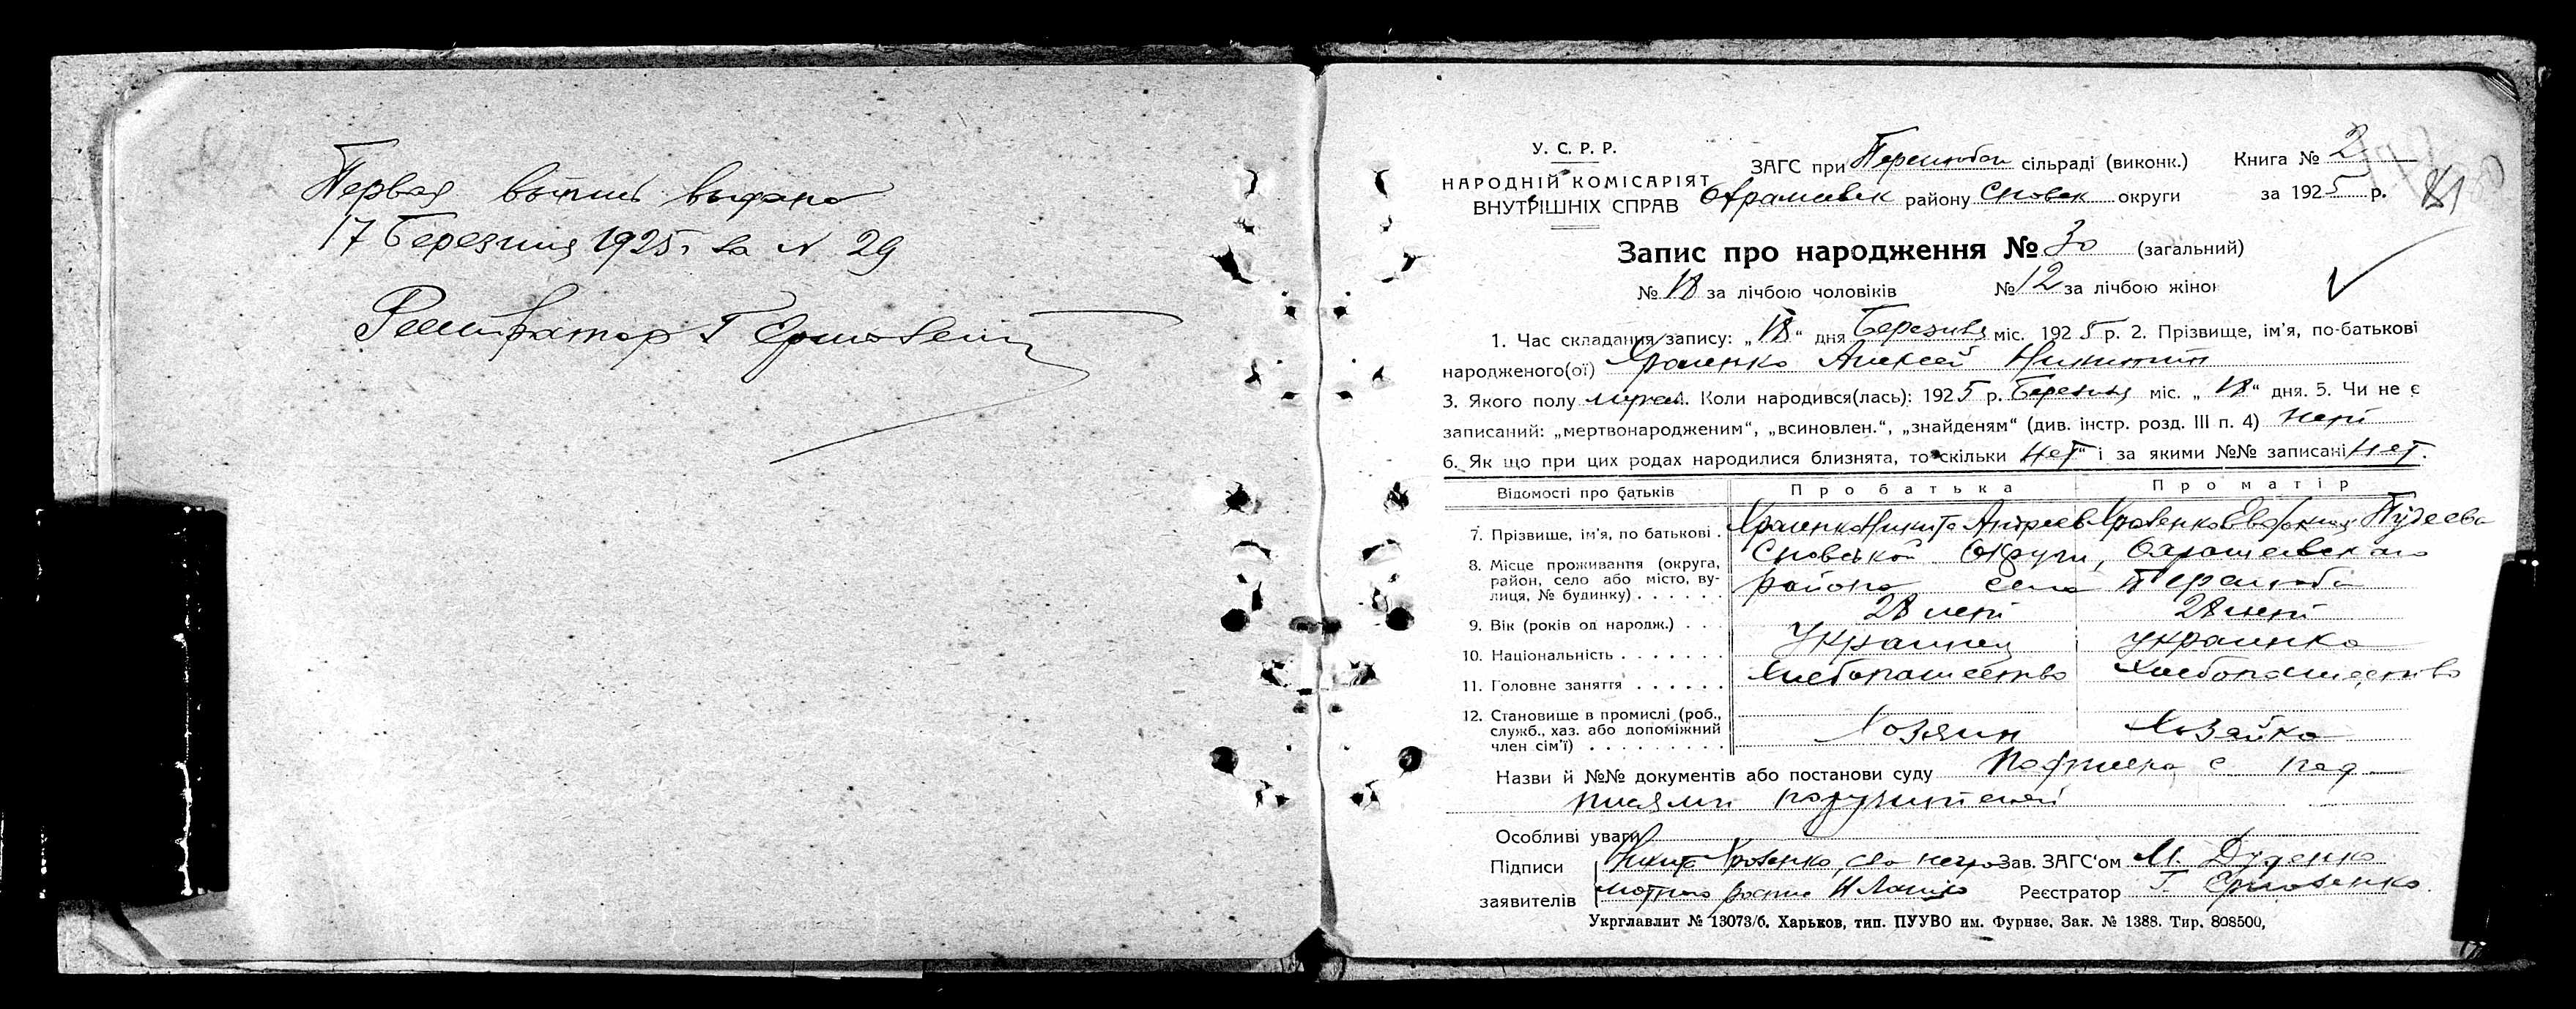 Первая выпись выдана
17 Березня 1925 г за № 29
Регистратор Г Ермоленко
У. С. Р. Р.
НАРОДНІЙ КОМІСАРІЯТ
ВНУТРІШНІХ СПРАВ
ЗАГС при Перелюбск сільраді (виконк.)
районну Сновск округи
Книга № 2
за 1925 р.
81
Запис про народження № 30 (загальний)
№ 18 за лічбою чоловіків № 12 за лічбою жінок
1. Час складання запису: „18“ дня Березня міс. 1925 р. 2. Прізвище, ім’я, по-батькові
народженого(ої) Алексей Никитин
3. Якого полу 4. Коли народився(лась): 1925 р. Березня міс. „18“ дня. 5. Чи не є
записаний: „мертвонародженим“, „всиновлен.“, „знайденям“ (див. інстр. розд. III п. 4) нет
6. Як що при цих родах народилися близнята, то скільки „нет“ і за якими №№ записані нет.
Відомості про батьків Про батька Про матір
7. Прізвище, ім’я, по батькові . Никита Андреев
8. Місце проживання (округа, район, село або місто, вулиця, № будинку) . . . . . .
Сновской Округи,
района села Перелюба
9. Вік (років од народж.) . . . 28 лет 28 лет
10. Національність . . . . . . . Украинец украинка
11. Головне заняття . . . . . . Хлебопашество Хлебопашество
12. Становище в промислі (роб., служб., хаз. або допоміжний член сім’ї) . . . . . . . . . Хозяин Хозайка
Назви й №№ документів або постанови суду с под
писями поручителей
Особливі уваги
Підписи Никита
Зав. ЗАГС‘ом М. Дуденко
заявителів
Реєстратор Г. Ермоленко.
Укрглавлит № 13073/б. Харьков, тип. ПУУВО им. Фурнзе. Зак. № 1388. Тир. 808500,